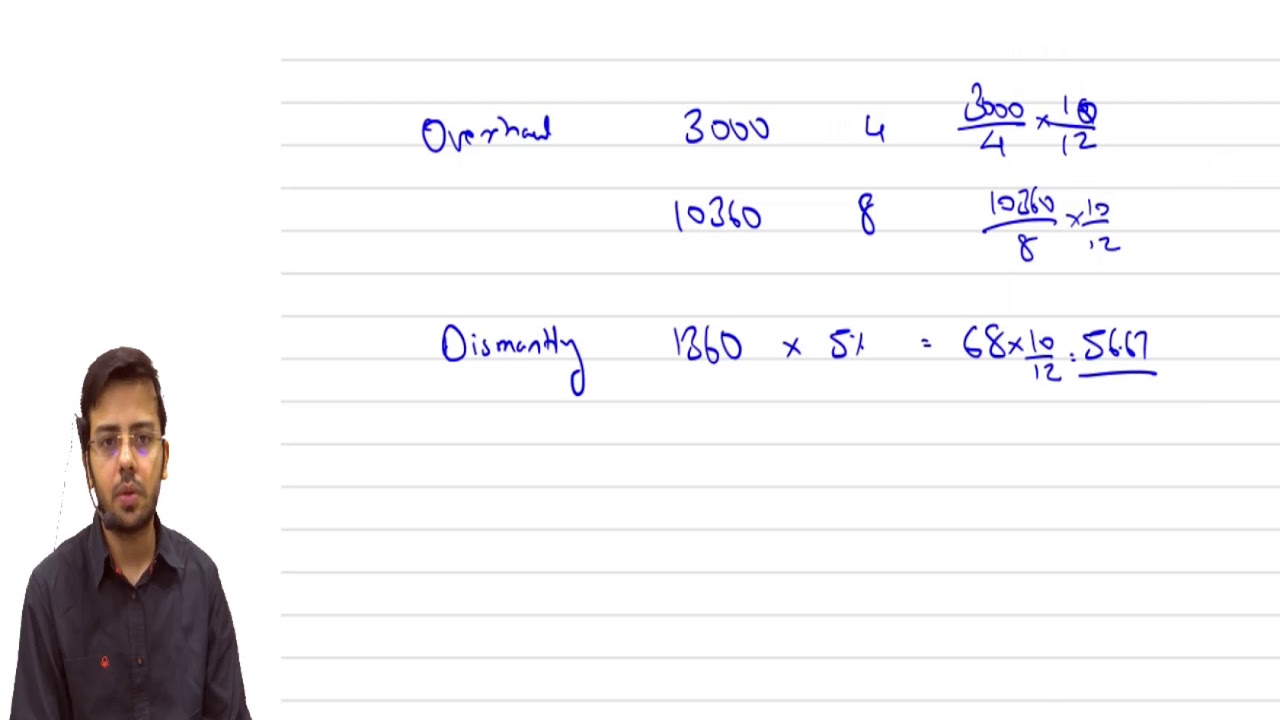 Overhaul 3000 4 3000/4 × 10/12
10360 8 10360/8 × 10/12
Dismantly 1360 × 5% = 68 × 10/12 = 56.67